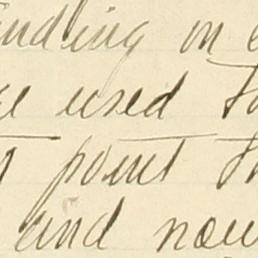 nding on
used
point
and now